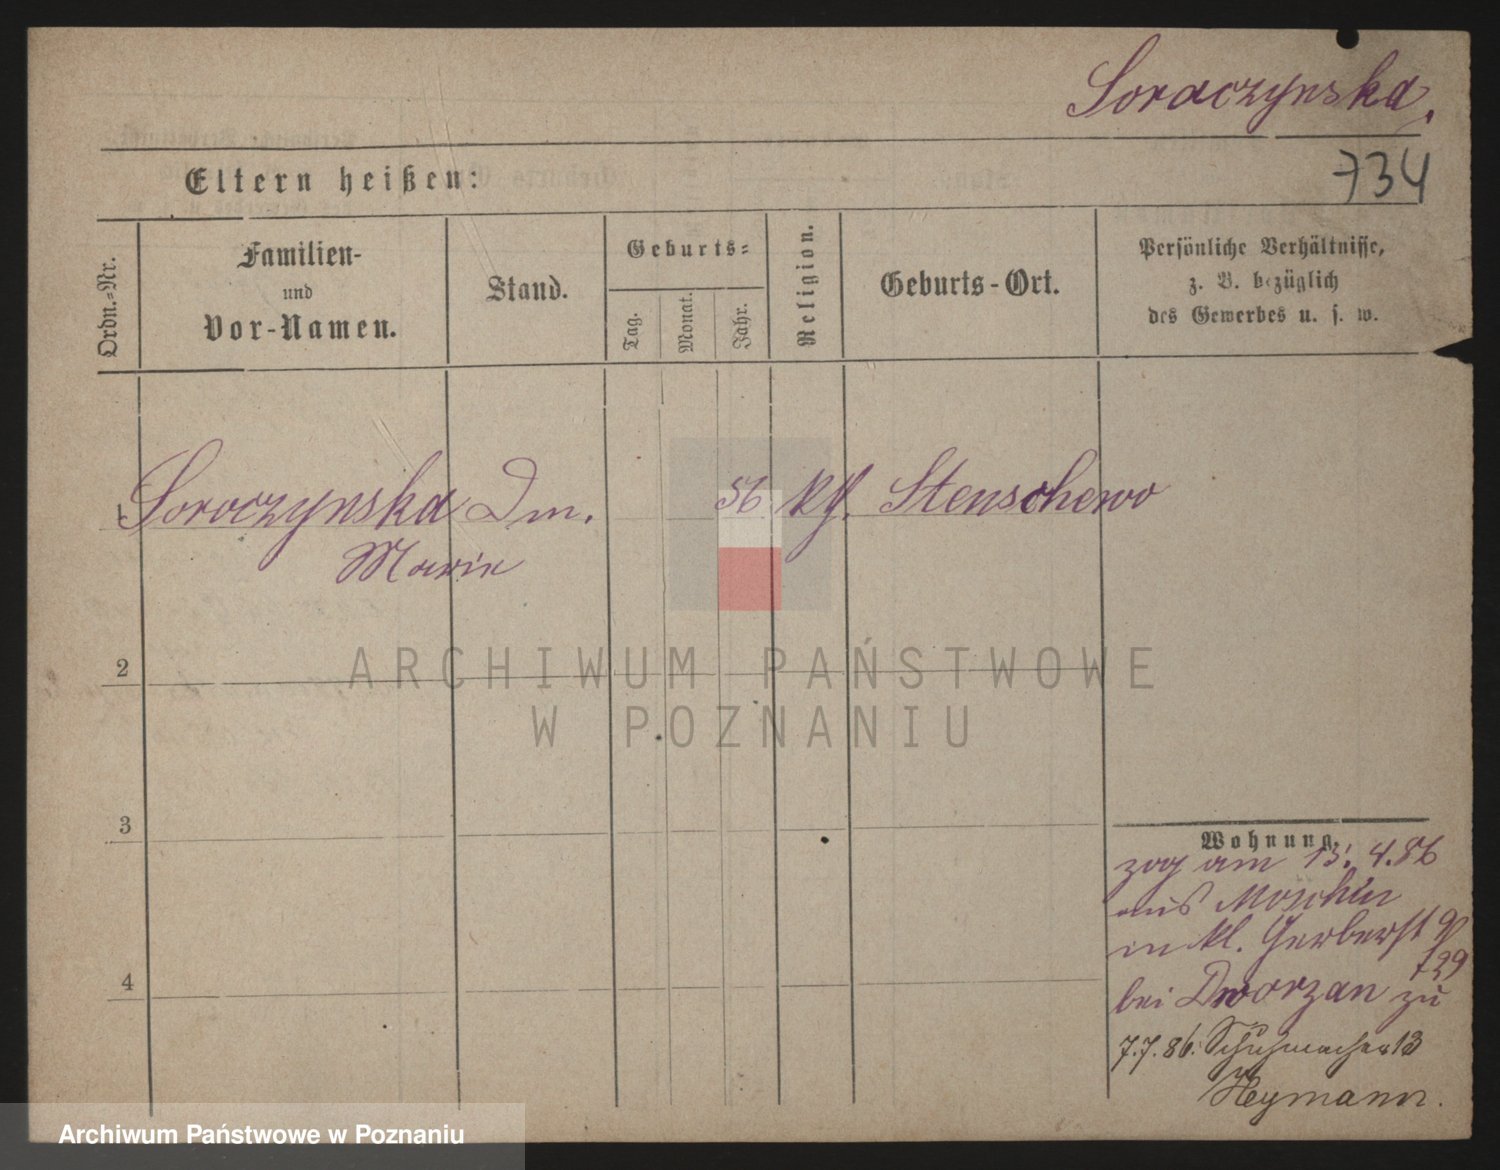 Soraczynska.
734
Eltern heißen:
Ordn.-Nr.
Familien-
und
Vor-Namen.
Stand.
Geburts-
Tag.
Monat.
Jahr.
Religion.
Geburts-Ort.
Persönliche Verhältnisse,
z. B. bezüglich
des Gewerbes u. s. w.
1 Soroczynska Dm. 56 kth. Stenschewo
Marie
2
ARCHIWUM PAŃSTWOWE
W POZNANIU
3
Wohnung.
zog am 15. 4. 86
aus Moschin
in kl. Gerberst 9
bei Dworzan zu
4
7.7.86. Schuhmacher 13
Heymann.
Archiwum Państwowe w Poznaniu